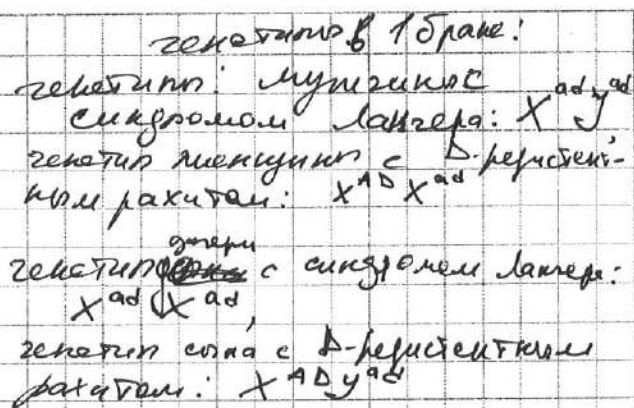 генотипы в 1 браке:
генотипы: мужчины с
синдромом Лангера: X^ad y^ad
генотип женщины с D-резистент-
ным рахитом: X^AD X^ad
дочери
генотип с синдромом Лангера:
X^ad X^ad,
генотип сына с D-резистентным
рахитом: X^AD y^ad